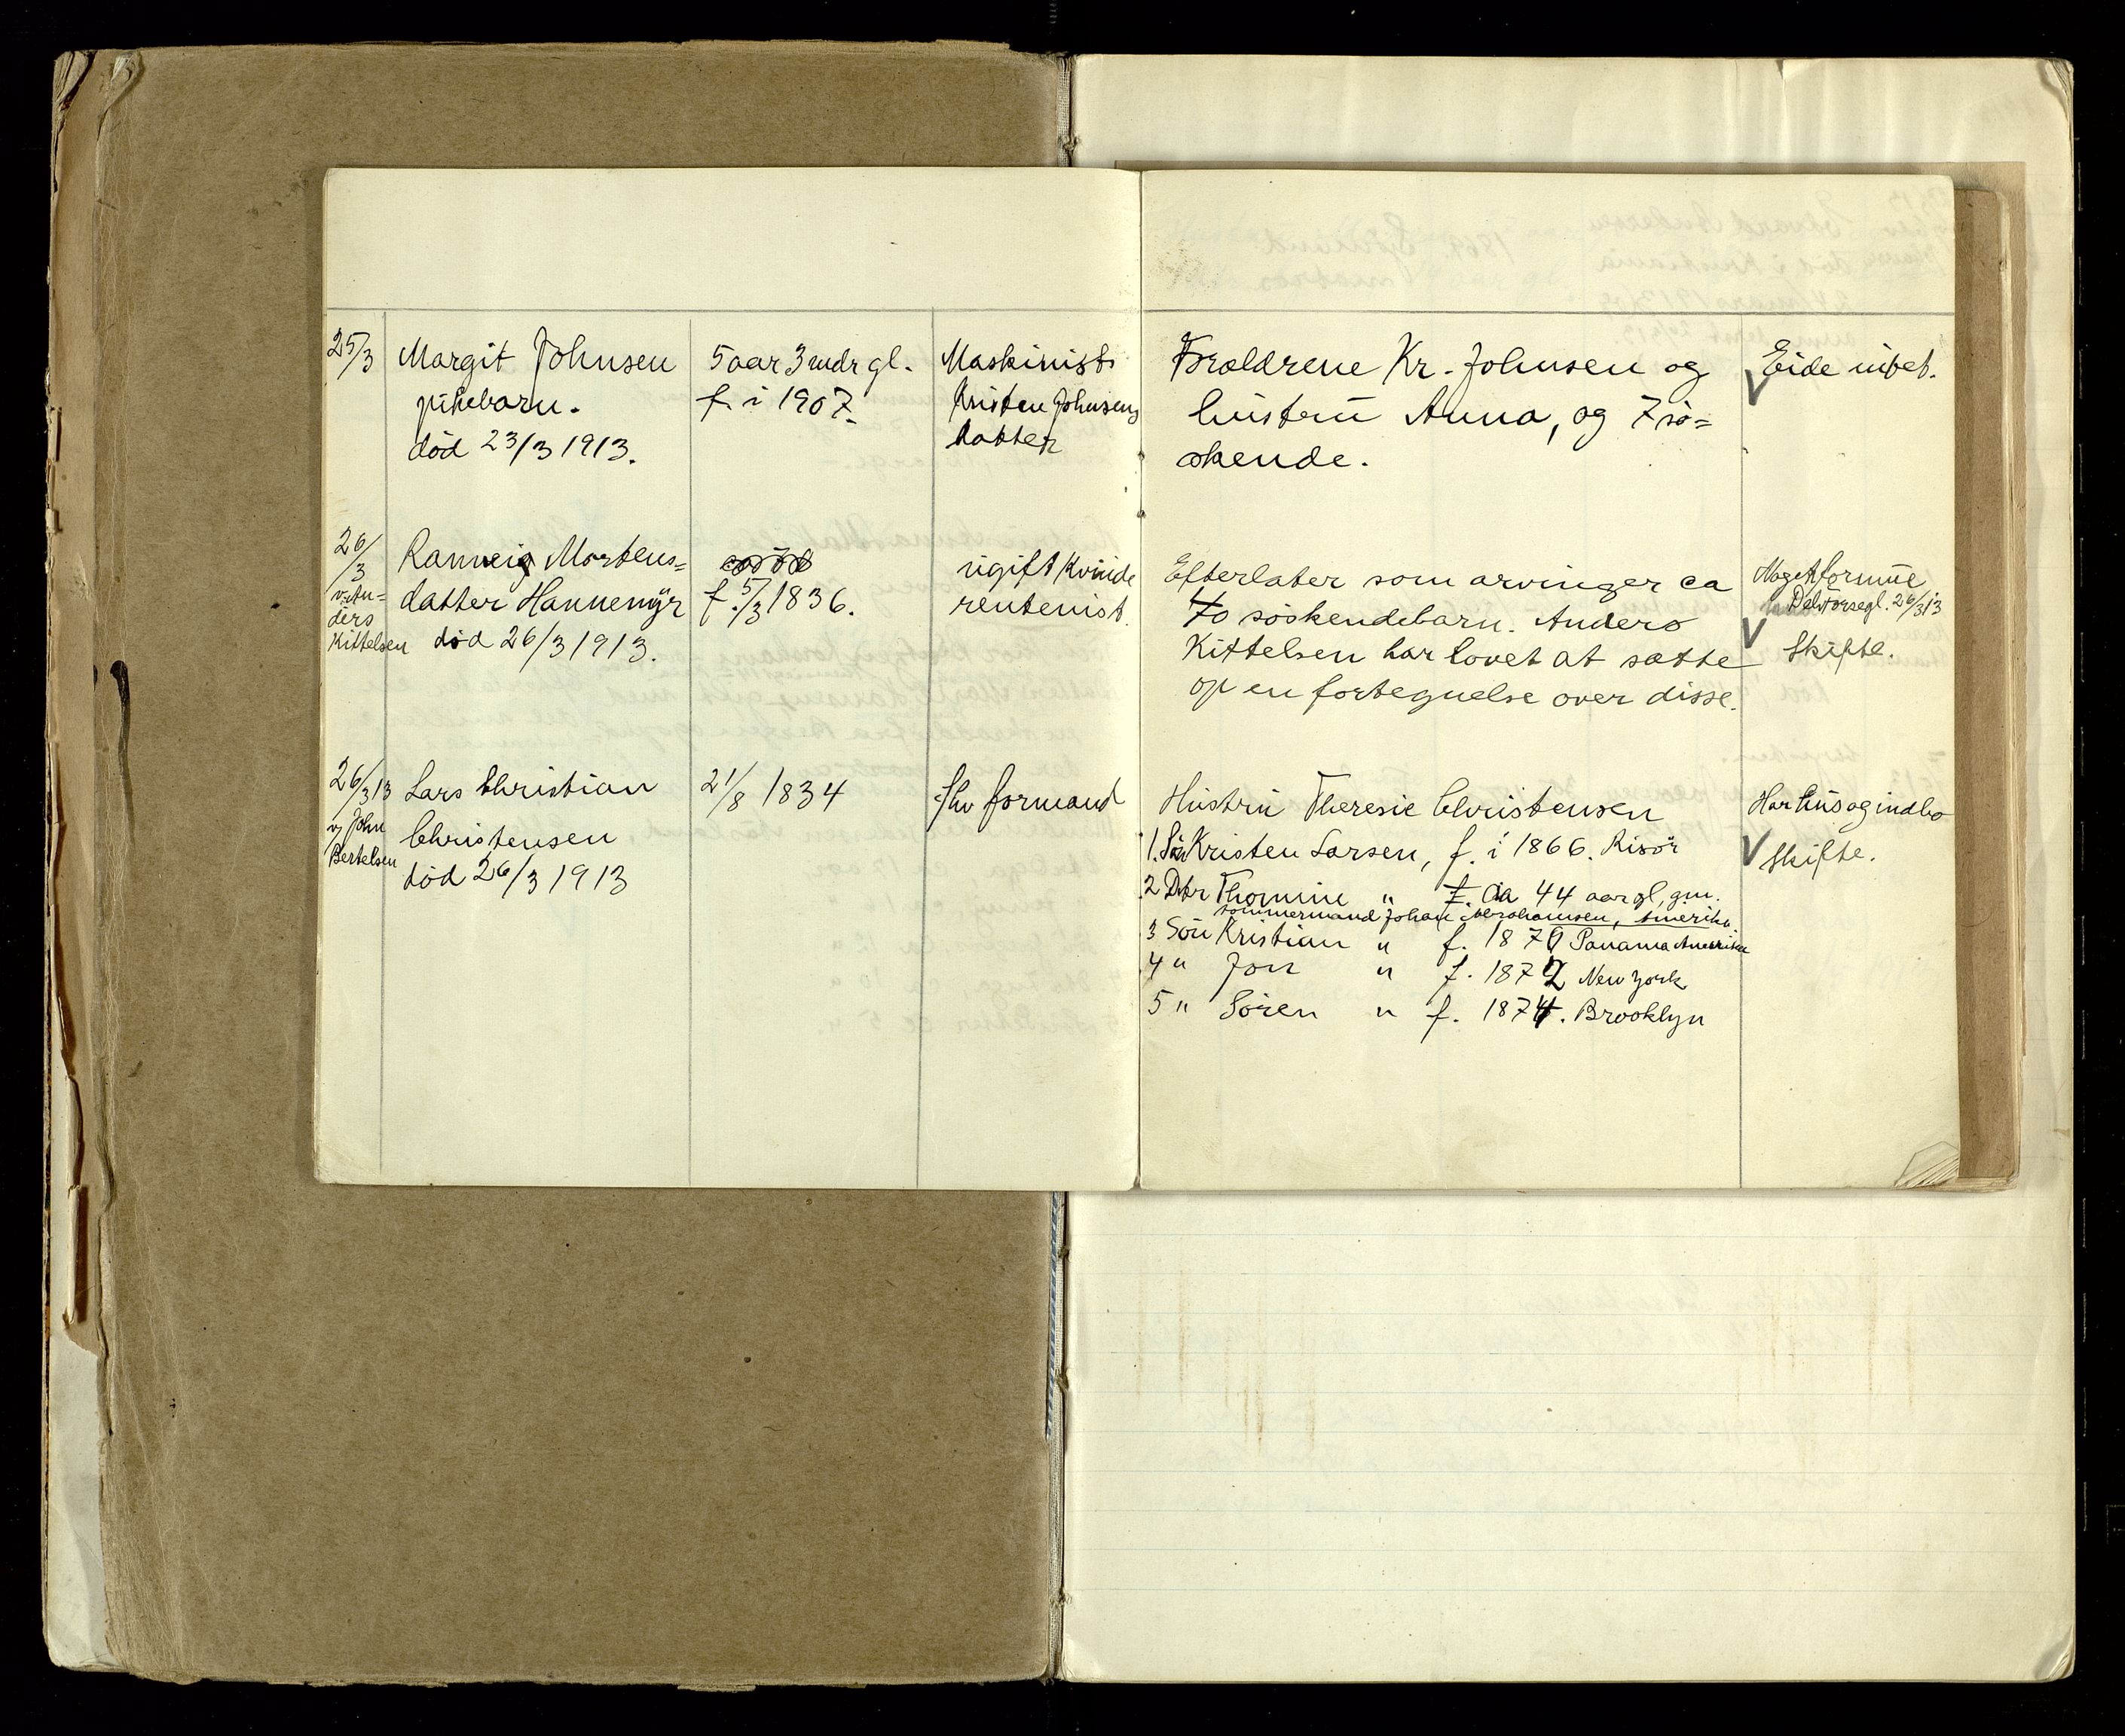 25/3 Margit Johnsen 5 aar 3 mdr gl. Maskinist Forældrene Kr. Johnsen og Eide intet.
pikebarn. f. i 1907. Kristen Johnsens hustru Anna, og 7 sø=
død 23/3 1913. datter skende.
26/3 Ranneig Mortens= ugift Kvinde Efterlater som arvinger ca Noget formue
v. An= datter Hannemyr f. 5/3 1836. rentenist. 70 söskendebarn. Anders forsegl. 26/3 13
ders
Kittelsen död 26/3 1913. Kittelsen har lovet at sætte V Skifte.
op en fortegnelse over disse.
26/3 13 Lars Christian 21/8 1834 fhv formand Hustru Theresie Christensen Har hus og indbo
v/ John Christensen 1. Sön Kristen Larsen, f. i 1866. Risör V Skifte.
Bertelsen død 26/3 1913 2 Dtr Thomine " f. ca 44 aar gl, gm.
tømmermand Johan Abrahamsen, Amerika.
3 Sön Kristian " f. 1870 Panama Amerika
4 " Jon " f. 1872 New York
5 " Sören " f. 1874. Brooklyn